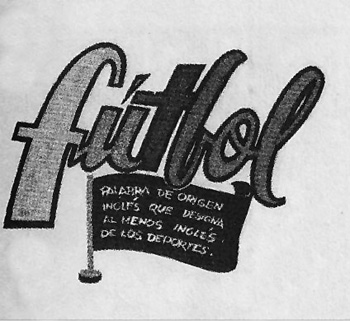 fútbol
PALABRA DE ORIGEN
INGLÉS QUE DESIGNA
AL MENOS INGLÉS
DE LOS DEPORTES.